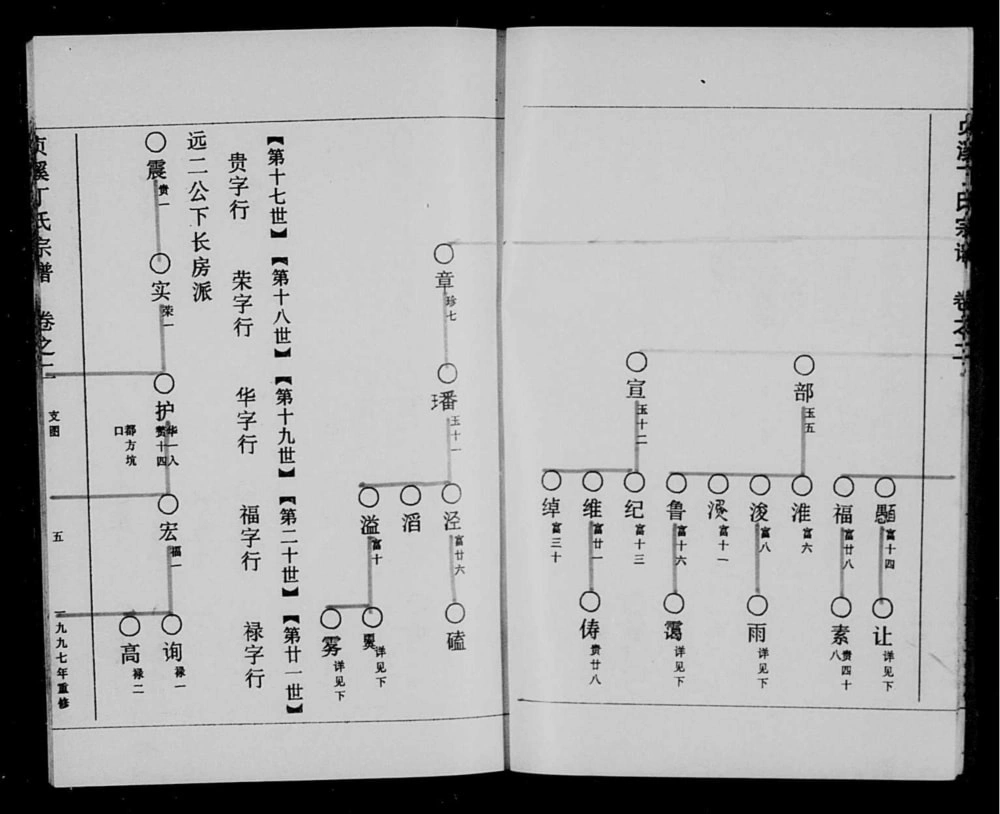 丁氏宗谱 卷之二
章 珍七
宣 玉十二
部 玉五
璠 玉十一
愚 富十四
福 富廿八
淮 富六
浚 富八
富十一
鲁 富十六
纪 富十三
维 富廿一
绰 富三十
泾 富廿六
滔
溢 富十
让 详见下
素 贵四十八
雨 详见下
霭 详见下
俦 贵廿八
磕
详见下
雾 详见下
【第十七世】【第十八世】【第十九世】【第二十世】【第廿一世】
贵字行 荣字行 华字行 福字行 禄字行
远二公下长房派
震 贵一
实 荣一
护 华一入赘十四都方坑口
宏 福一
询 禄一
高 禄二
贡溪丁氏宗谱 卷之二 支图 五 一九九七年重修